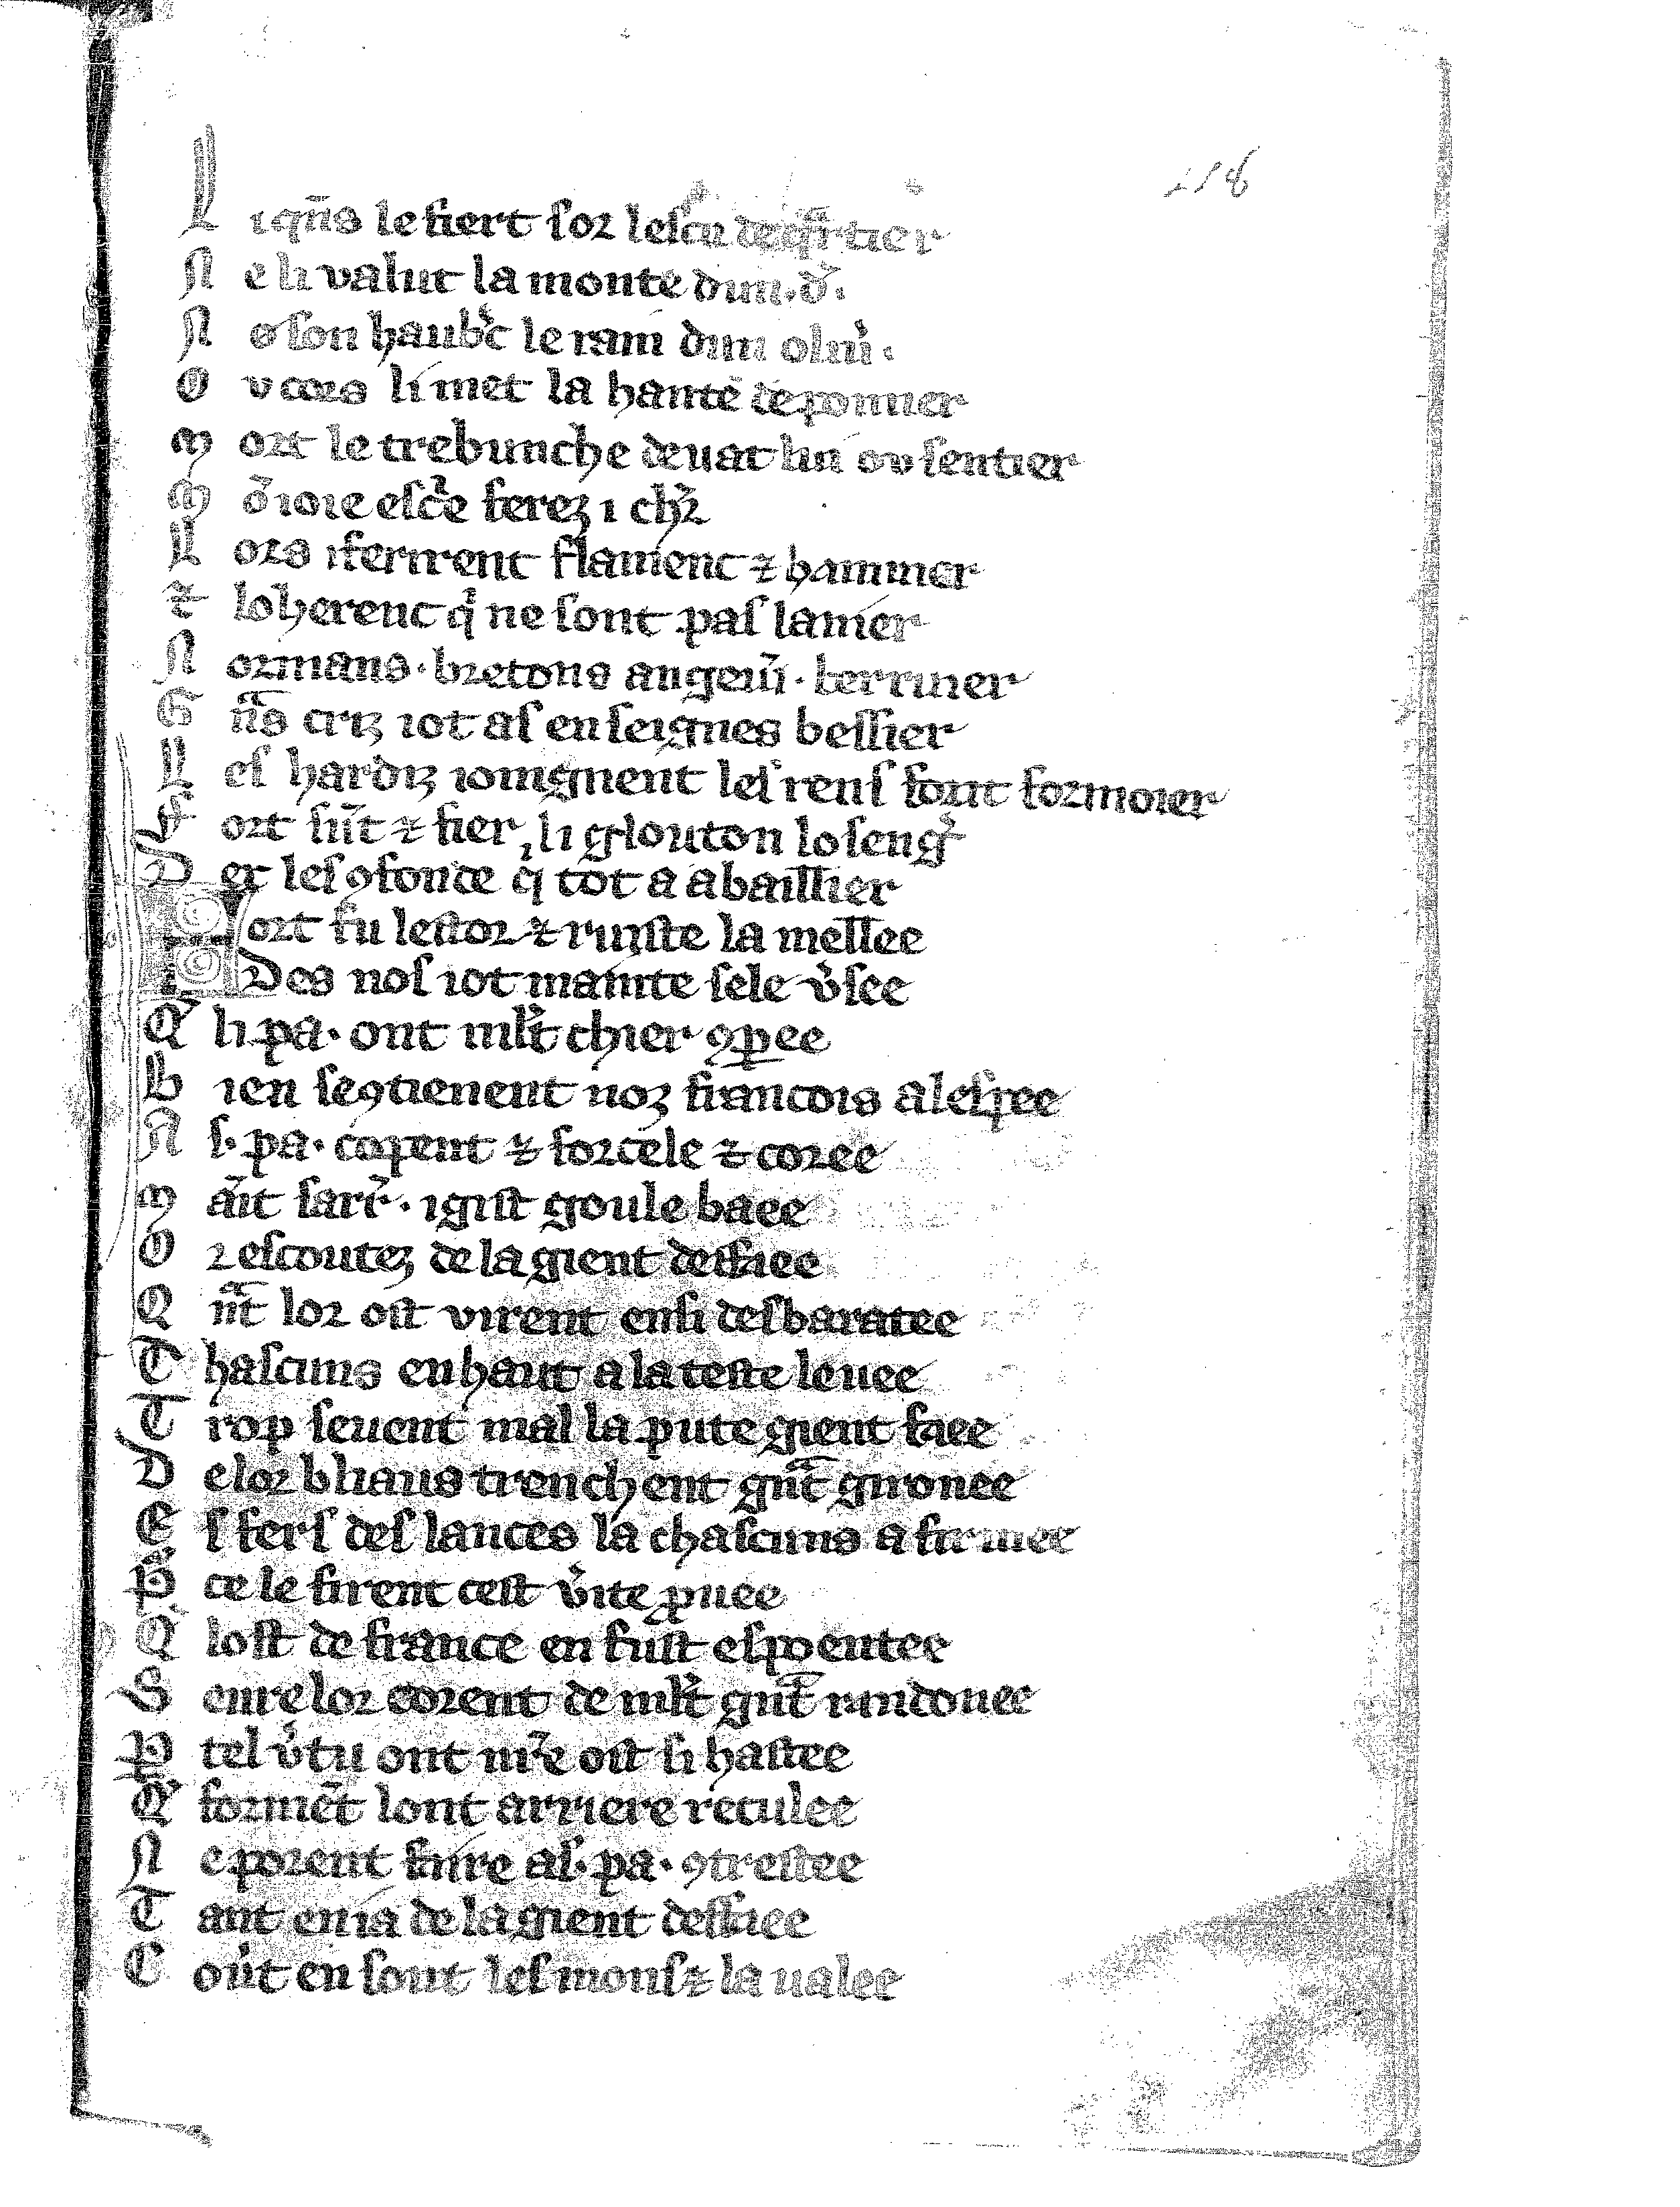 218
L i q̃ns le fiert sor lescu de qͣrtier
N e li valut la monte dun .d̃.
N e son haub̾c le ram dun oliu̾.
O v cors li met la hante de pomier
M ort le trebunche deuāt lui ov sentier
M ō ioie esc̾e ferez i chl̾r
L ors i ferirent flamenc ⁊ bauiuier
⁊ loherenc qͥ ne sont pas lanier
N ormans · bretons angeui̾ · berruier
G ͣns criz i ot as enseignes bessier
L es hardiz ioingnent les rens font formoier
F ort sūt ⁊ fier li glouton loseng̾
D ex les ꝯfonde qͥ tot a a baillier
F ort fu lestor ⁊ ruiste la mellee
D es nos i ot mainte sele v̾see
Q̾ li pa · ont ml̾t chier ꝯpee
B ien se ꝯtienent noz francois a lespee
A s · pa · copent ⁊ forcele ⁊ coree
M āit sarr̾ · i gist goule baee
O r escoutez de la gient desfaee
Q ͣnt lor ost virent ensi desbaratee
C hascuns en haut a la teste leuee
T rop seuent mal la pute gient faee
D e lor bliaus trenchent gͣnt gironee
E s fers des lances la chascuns a fermee
P̾ ce le firent cest v̾ite ꝓuee
Q̾ lost de france en fust espoentee
S eure lor corent de ml̾t gͣnt randonee
P̲ tel v̾tu ont nr̾e ost si hastee
Q̾ formēt lont arriere reculee
N e porent faire as · pa · ꝯtrestee
T ant en i a de la gient desfaee
C ou̾t en sont les mons ⁊ la ualee